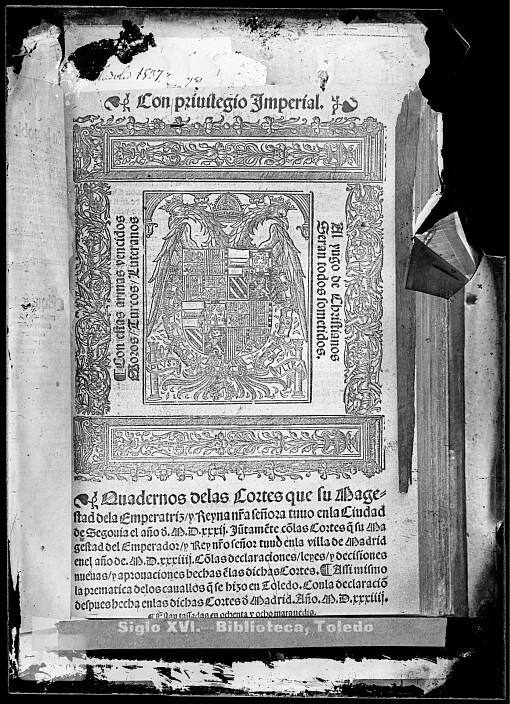 1537
Con priuilegio Imperial.
Con estas armas vencidos
Moros/Turcos/Luteranos
El yugo de Christianos
Seran todos sometidos.
PLVS
VLTRA
Quadernos delas Cortes que su Mage-
stad dela Emperatriz/y Reyna nr̃a señora tuuo enla Ciudad
de Segouia el año d̃. M.D.xxxij. Jũtamẽte cõlas Cortes q̃ su Ma
gestad del Emperador/y Rey nr̃o señor tuuo enla villa de Madrid
enel año de. M.D.xxxiiij. Cõlas declaraciones/leyes/y decisiones
nueuas/y aprouaciones hechas ẽlas dichas Cortes. ¶ Assi mismo
la prematica delos cauallos q̃ se hizo en Toledo. Conla declaraciõ
despues hecha enlas dichas Cortes d̃ Madrid. Año. M.D.xxxiiij.
¶ Estan tassadas en ochenta y ocho marauedis.
Siglo XVI.- Biblioteca, Toledo